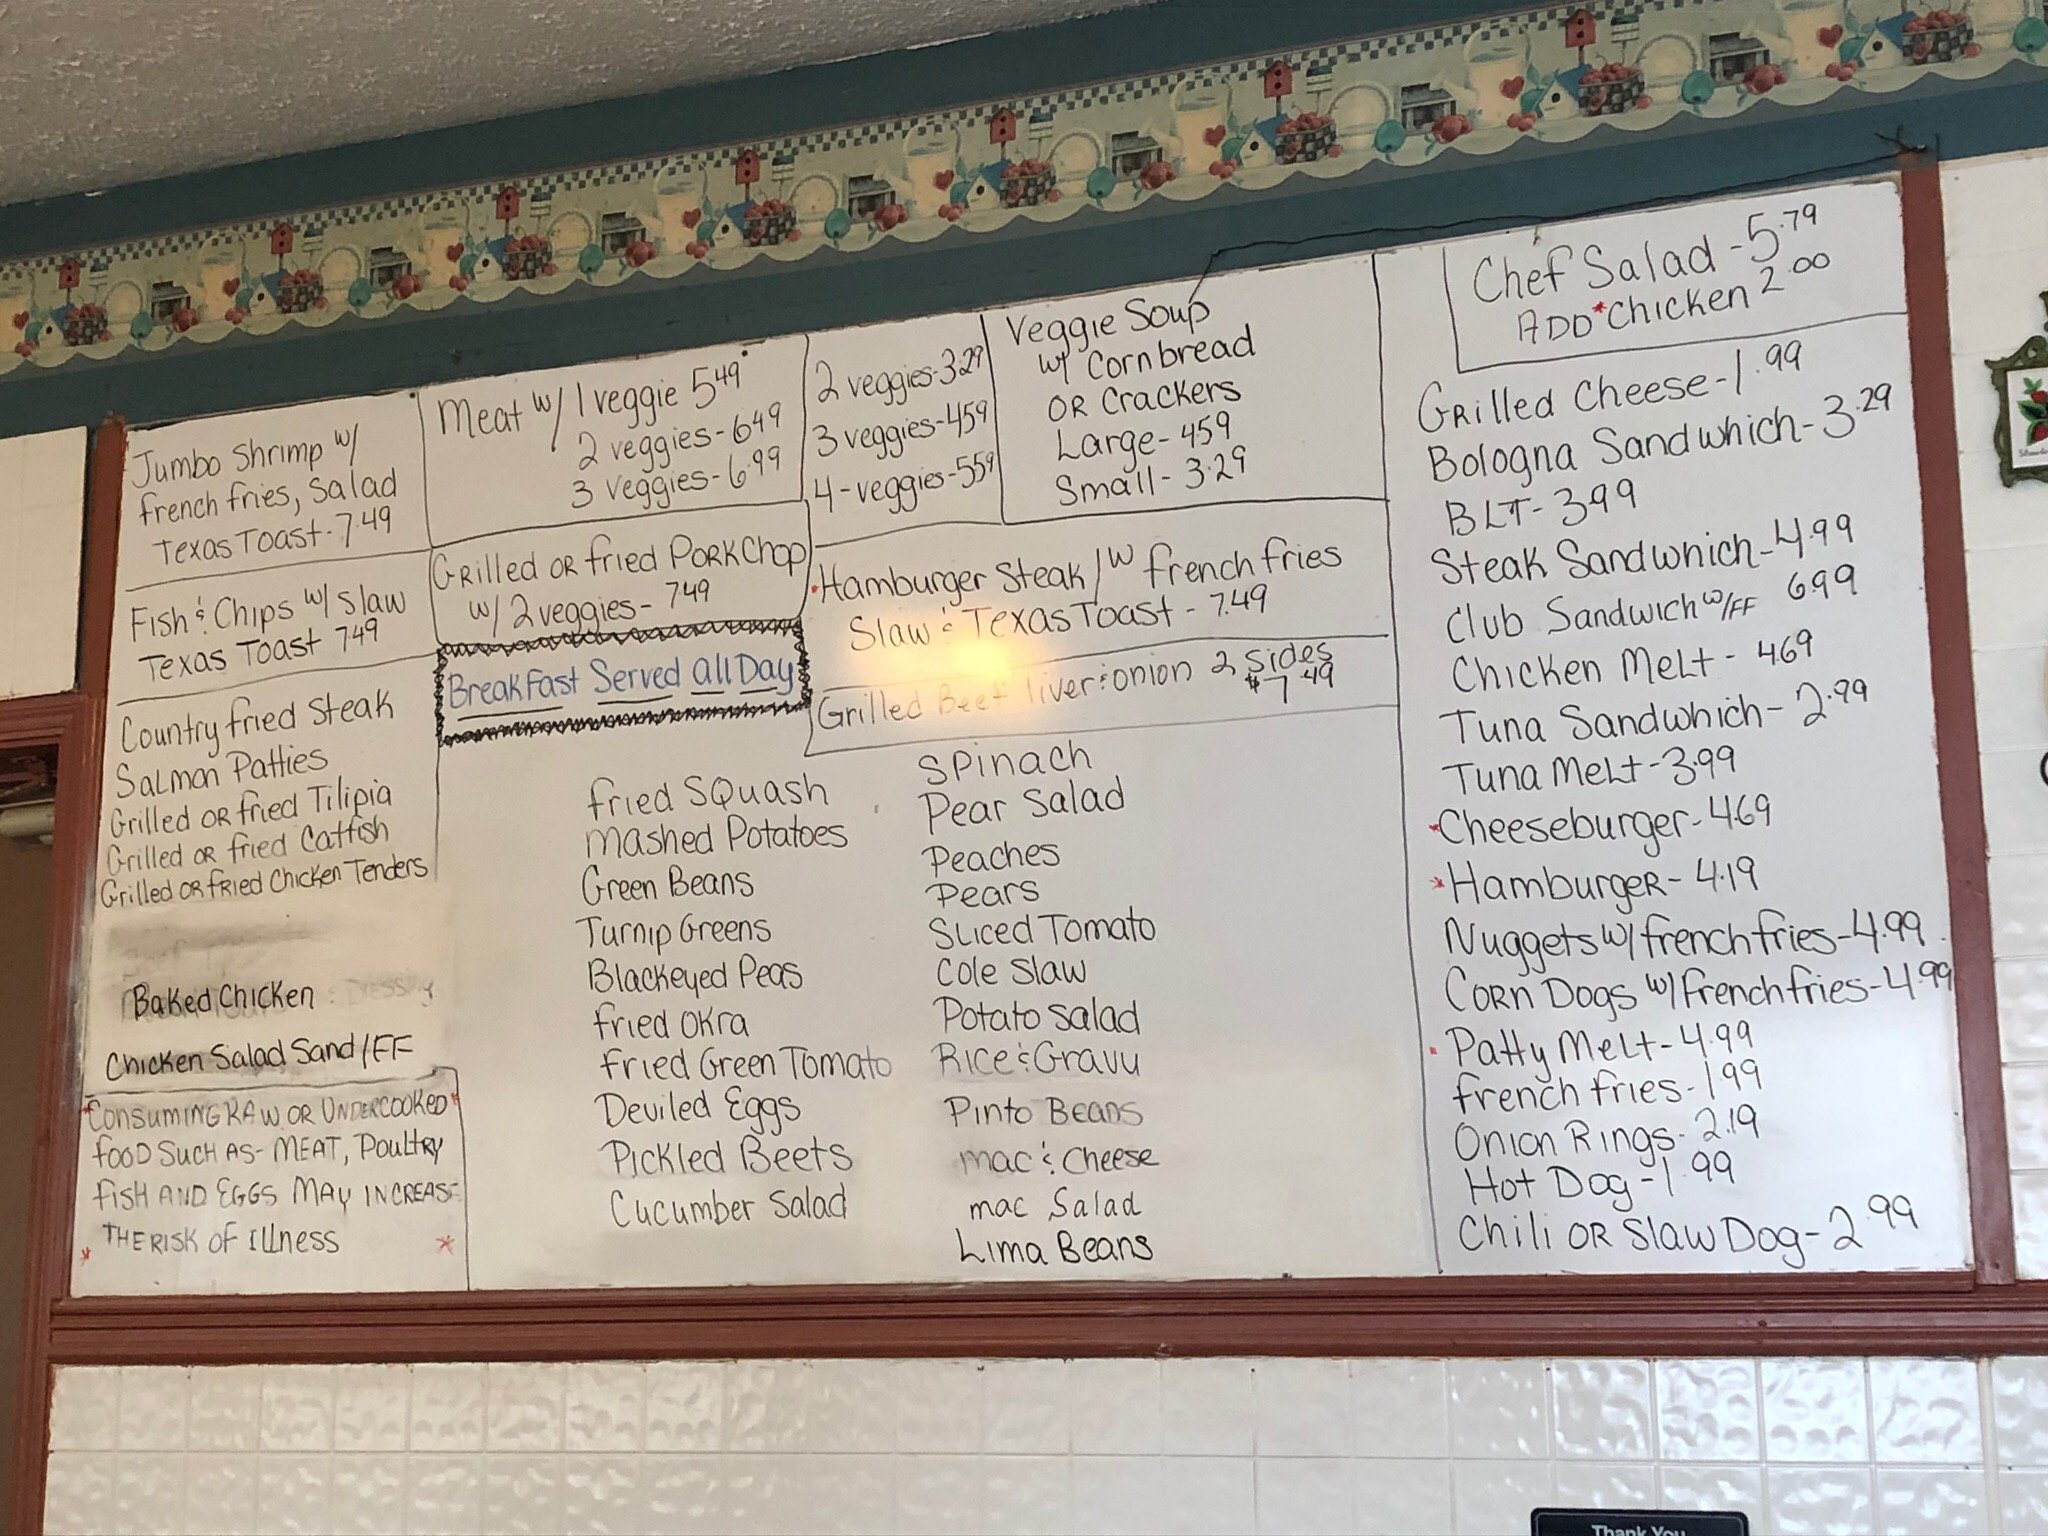 Jumbo Shrimp w/
french fries, Salad
Texas Toast - 7.49
Fish & Chips w/ Slaw
Texas Toast 7.49
Country fried Steak
Salmon Patties
Grilled OR fried Tilipia
Grilled OR fried Catfish
Grilled OR fried Chicken Tenders
Baked Chicken
Chicken Salad Sand/FF
*Consuming Raw or Undercooked*
food such as - meat, Poultry
fish and eggs may increase
*the risk of illness *
Meat w/ 1 veggie 5.49
2 veggies - 6.49
3 veggies - 6.99
Grilled OR fried Pork Chop
w/ 2 veggies - 7.49
Breakfast Served All Day
2 veggies - 3.29
3 veggies - 4.59
4 - veggies - 5.59
Veggie Soup
w/ Cornbread
OR Crackers
Large - 4.59
Small - 3.29
*Hamburger Steak /w french fries
Slaw & Texas Toast - 7.49
Grilled Beef liver & onion 2 Sides
$7.49
fried Squash
mashed Potatoes
Green Beans
Turnip Greens
Blackeyed Peas
fried Okra
fried Green Tomato
Deviled Eggs
Pickled Beets
Cucumber Salad
Spinach
Pear Salad
Peaches
Pears
Sliced Tomato
Cole Slaw
Potato Salad
Rice & Gravy
Pinto Beans
mac & Cheese
mac Salad
Lima Beans
Chef Salad - 5.79
ADD *Chicken 2.00
Grilled Cheese - 1.99
Bologna Sandwhich - 3.29
BLT - 3.99
Steak Sandwhich - 4.99
Club Sandwich w/FF 6.99
Chicken Melt - 4.69
Tuna Sandwhich - 2.99
Tuna Melt - 3.99
*Cheeseburger - 4.69
*Hamburger - 4.19
Nuggets w/ french fries - 4.99
Corn Dogs w/ french fries - 4.99
*Patty Melt - 4.99
french fries - 1.99
Onion Rings - 2.19
Hot Dog - 1.99
Chili OR Slaw Dog - 2.99
Thank You